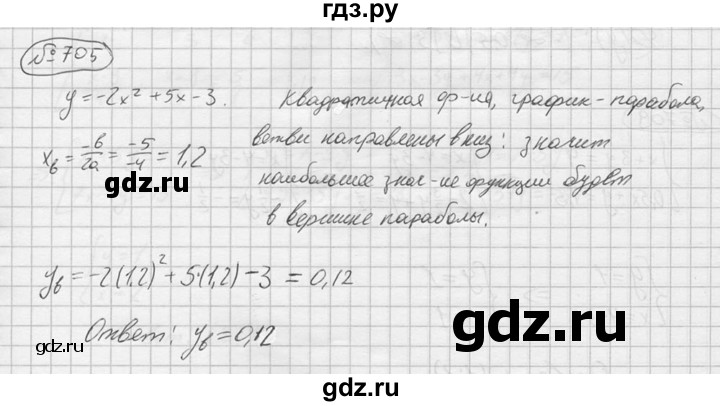 гдз.ру
№705
y = -2x² + 5x - 3. Квадратичная ф-ия, график - парабола,
ветви направлены вниз: значит
xв = -b/2a = -5/-4 = 1,2
наибольшее знач-ие функции будет
в вершине параболы.
yв = -2(1,2)² + 5·(1,2) - 3 = 0,12
Ответ: yв = 0,12
gdz.ru
gdz.ru
gdz.ru
gdz.ru